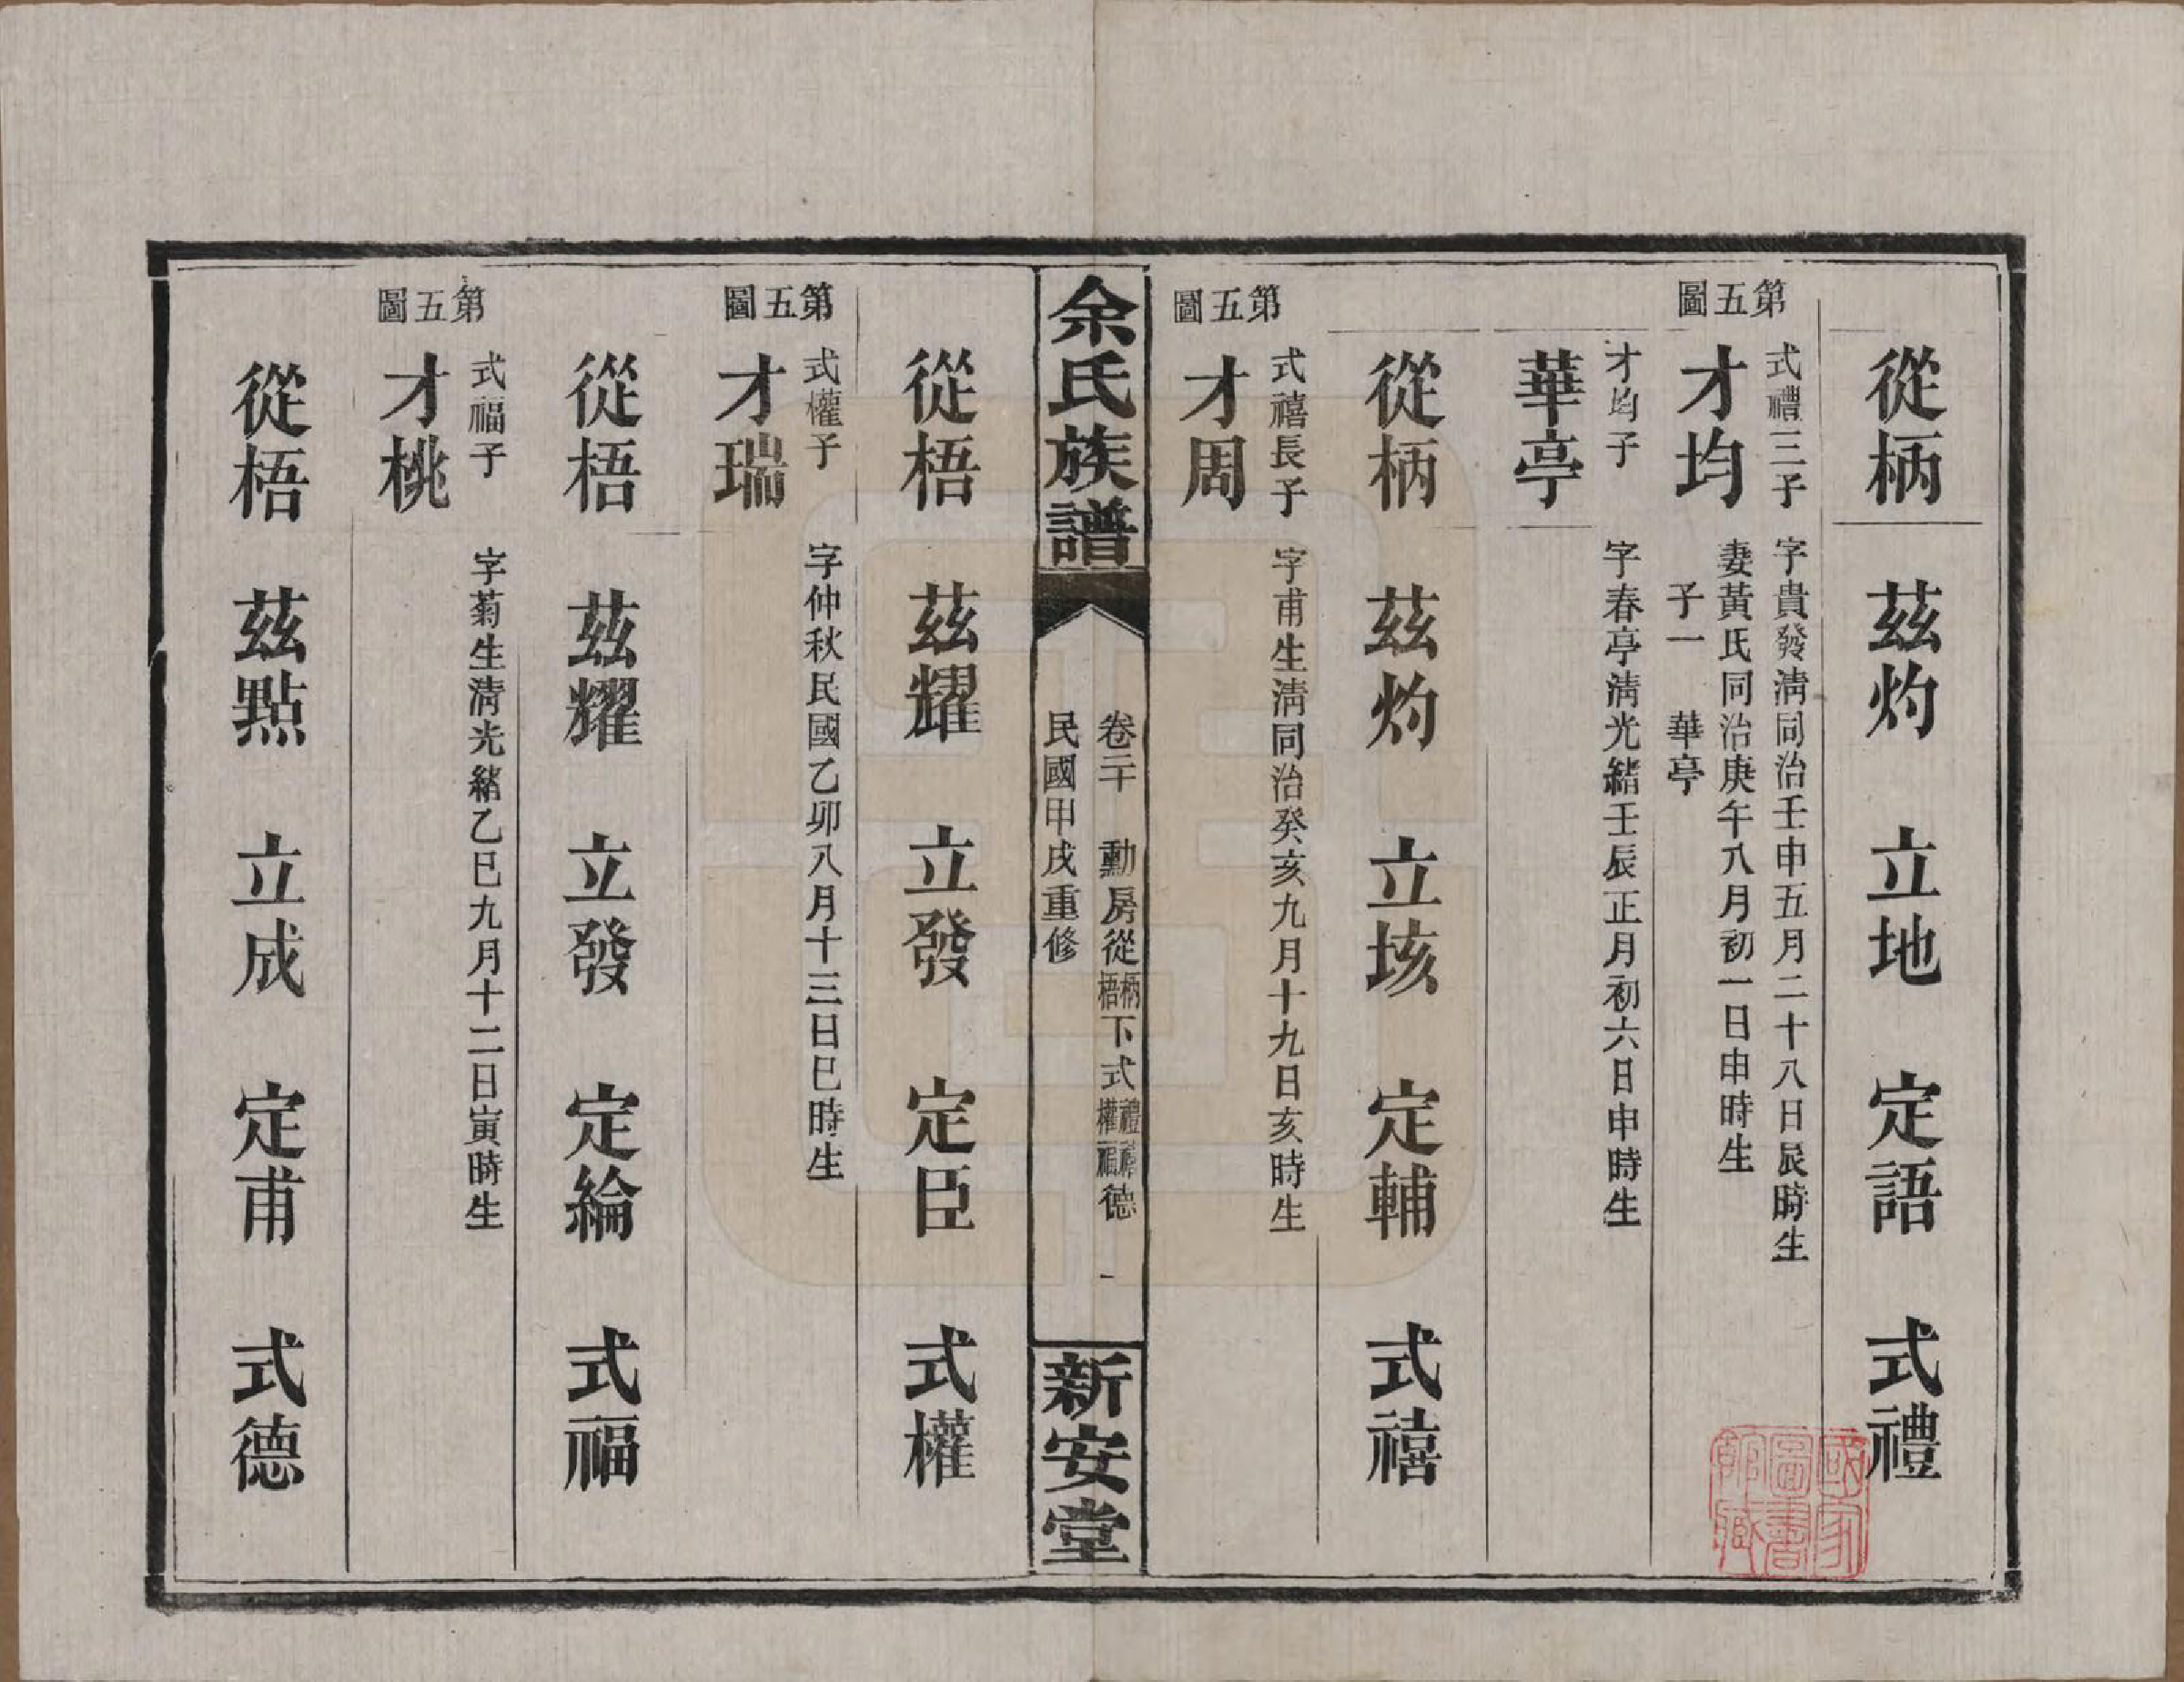 從柄 茲灼 立地 定語 式禮
第五圖
式禮三子 字貴發淸同治壬申五月二十八日辰時生
才均 妻黃氏同治庚午八月初一日申時生
子一 華亭
才均子 字春亭淸光緖壬辰正月初六日申時生
華亭
從柄 茲灼 立垓 定輔 式禧
第五圖
式禧長子 字甫生淸同治癸亥九月十九日亥時生
才周
余氏族譜
卷二十 勳房從柄梧下式禮禧權福德 一
民國甲戌重修
新安堂
從梧 茲耀 立發 定臣 式權
第五圖
式權子 字仲秋民國乙卯八月十三日巳時生
才瑞
從梧 茲耀 立發 定綸 式福
第五圖
式福子 字菊生淸光緖乙巳九月十二日寅時生
才桃
從梧 茲點 立成 定甫 式德
國家圖書館藏